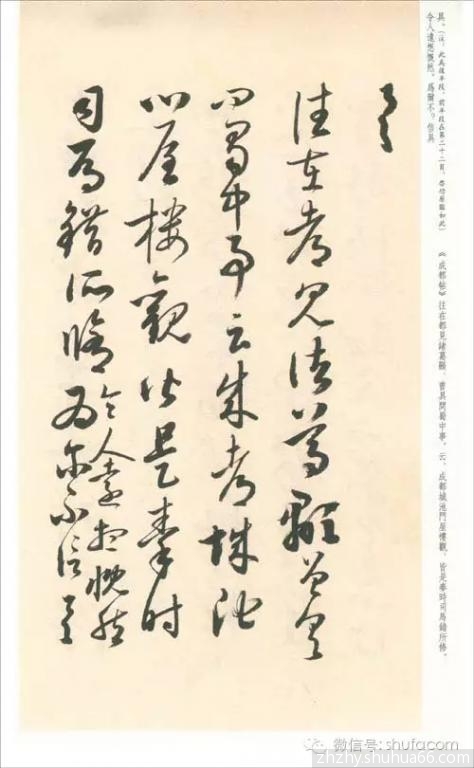 具。(注:此爲後半段,前半段在第二十二頁,啓功原臨如此) 《成都帖》往在都見諸葛顒,曾具問蜀中事,云,成都城池門屋樓觀,皆是秦時司馬錯所修,
令人遠想慨然。爲爾不?信具
具
往在都見諸葛顒曾具
問蜀中事云成都城池
門屋樓觀皆是秦時
司馬錯所脩令人遠想慨然
爲爾不信具
微信号: shufacom
zhzhy.shuhua66.com